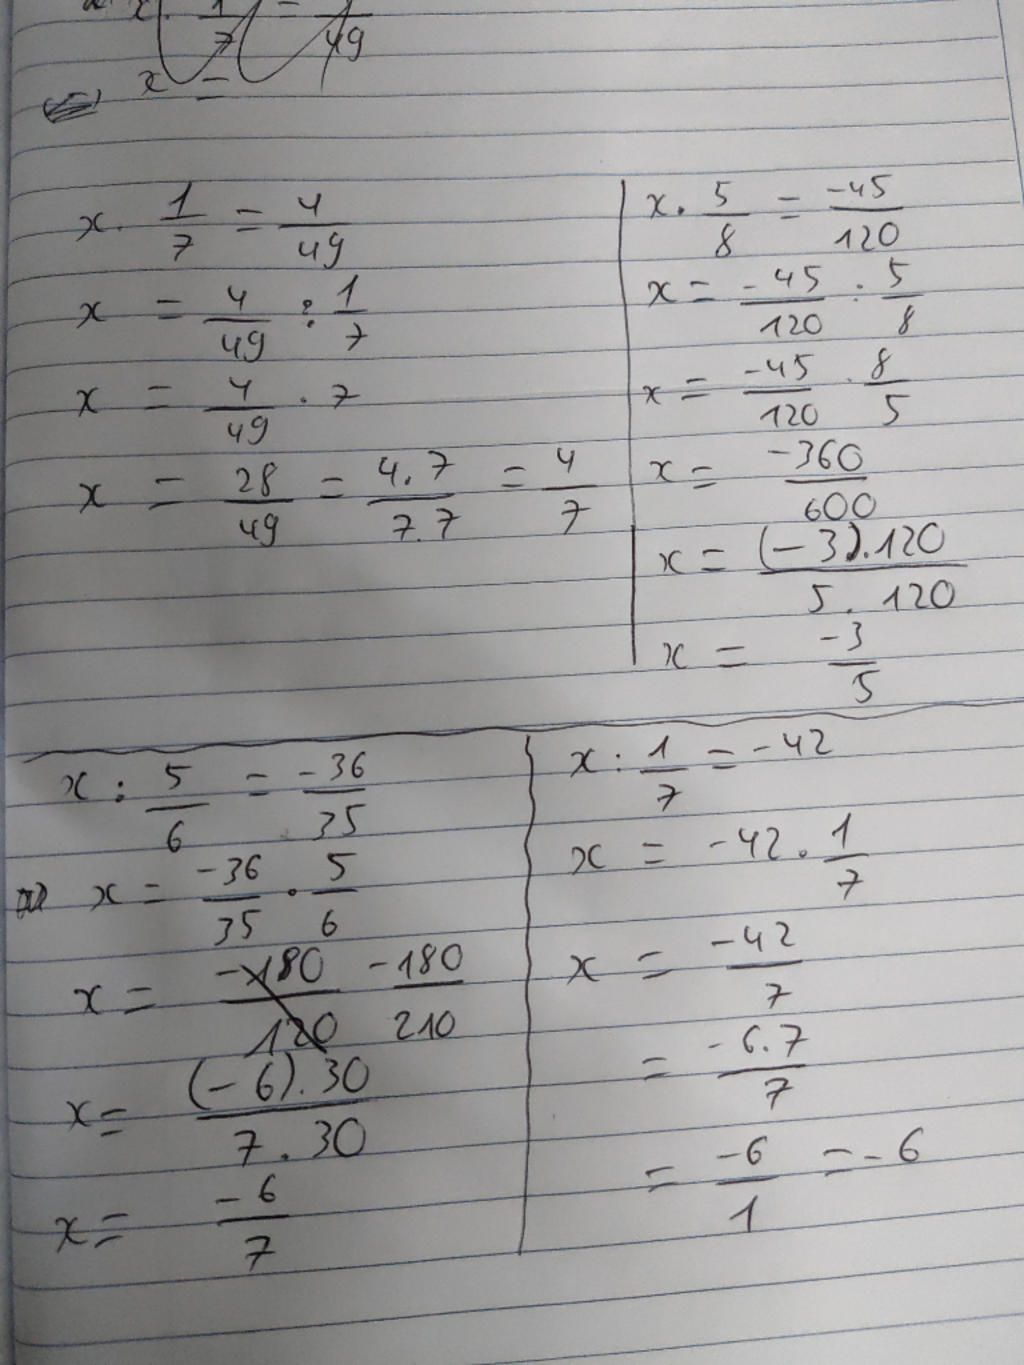 x · 1/7 = 1/49
x =
x · 1/7 = 4/49
x = 4/49 : 1/7
x = 4/49 · 7
x = 28/49 = 4.7/7.7 = 4/7
x · 5/8 = -45/120
x = -45/120 : 5/8
x = -45/120 · 8/5
x = -360/600
x = (-3).120/5.120
x = -3/5
x : 5/6 = -36/35
x = -36/35 · 5/6
x = -180/120 -180/210
x = (-6).30/7.30
x = -6/7
x : 1/7 = -42
x = -42 · 1/7
x = -42/7
= -6.7/7
= -6/1 = -6